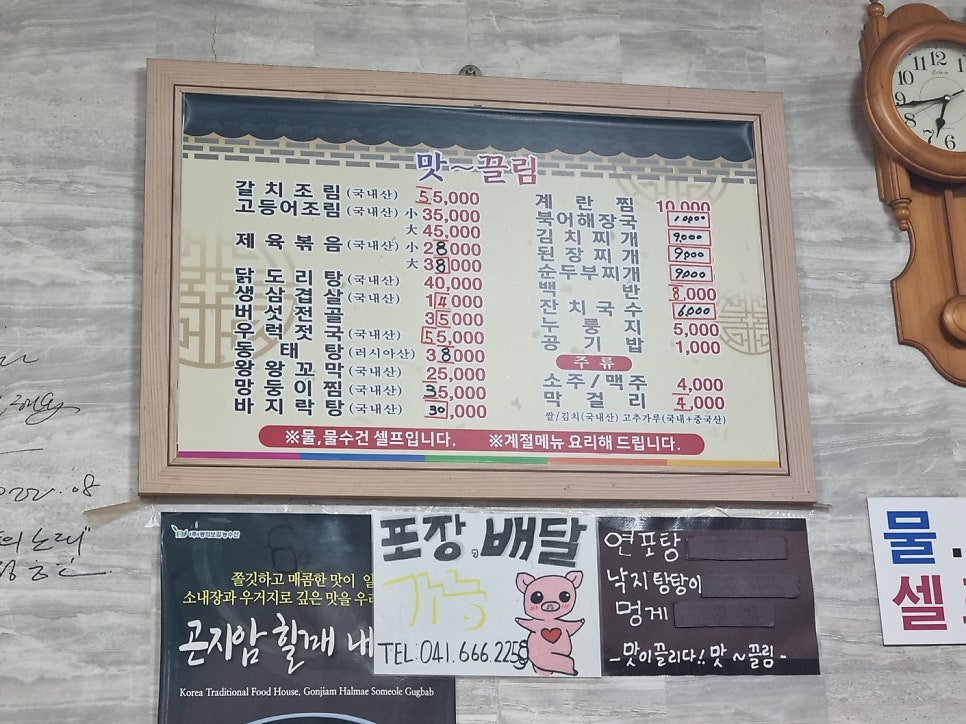 맛~끌림
갈치조림(국내산) 55,000
고등어조림(국내산) 小 35,000
大 45,000
제육볶음(국내산) 小 28,000
大 38,000
닭도리탕(국내산) 40,000
생삼겹살(국내산) 14,000
버섯전골 35,000
우럭젓국(국내산) 55,000
동태탕(러시아산) 38,000
왕왕꼬막(국내산) 25,000
망둥이찜(국내산) 35,000
바지락탕(국내산) 30,000
계란찜 10,000
북어해장국 10,000
김치찌개 9,000
된장찌개 9,000
순두부찌개 9,000
백반 8,000
잔치국수 6,000
누룽지 5,000
공기밥 1,000
주류
소주/맥주 4,000
막걸리 4,000
쌀/김치(국내산) 고추가루(국내+중국산)
※물,물수건 셀프입니다. ※계절메뉴 요리해 드립니다.
12
11
10
9
8
7
2022.08
쫄깃하고 매콤한 맛이
소내장과 우거지로 깊은 맛을
곤지암 할깨
Korea Traditional Food House. Gonjiam Halmae Someole Gugbab
포장, 배달
가능
TEL:041.666.2258
연포탕
낙지탕탕이
멍게
-맛이끌리다!! 맛~끌림-
물
셀